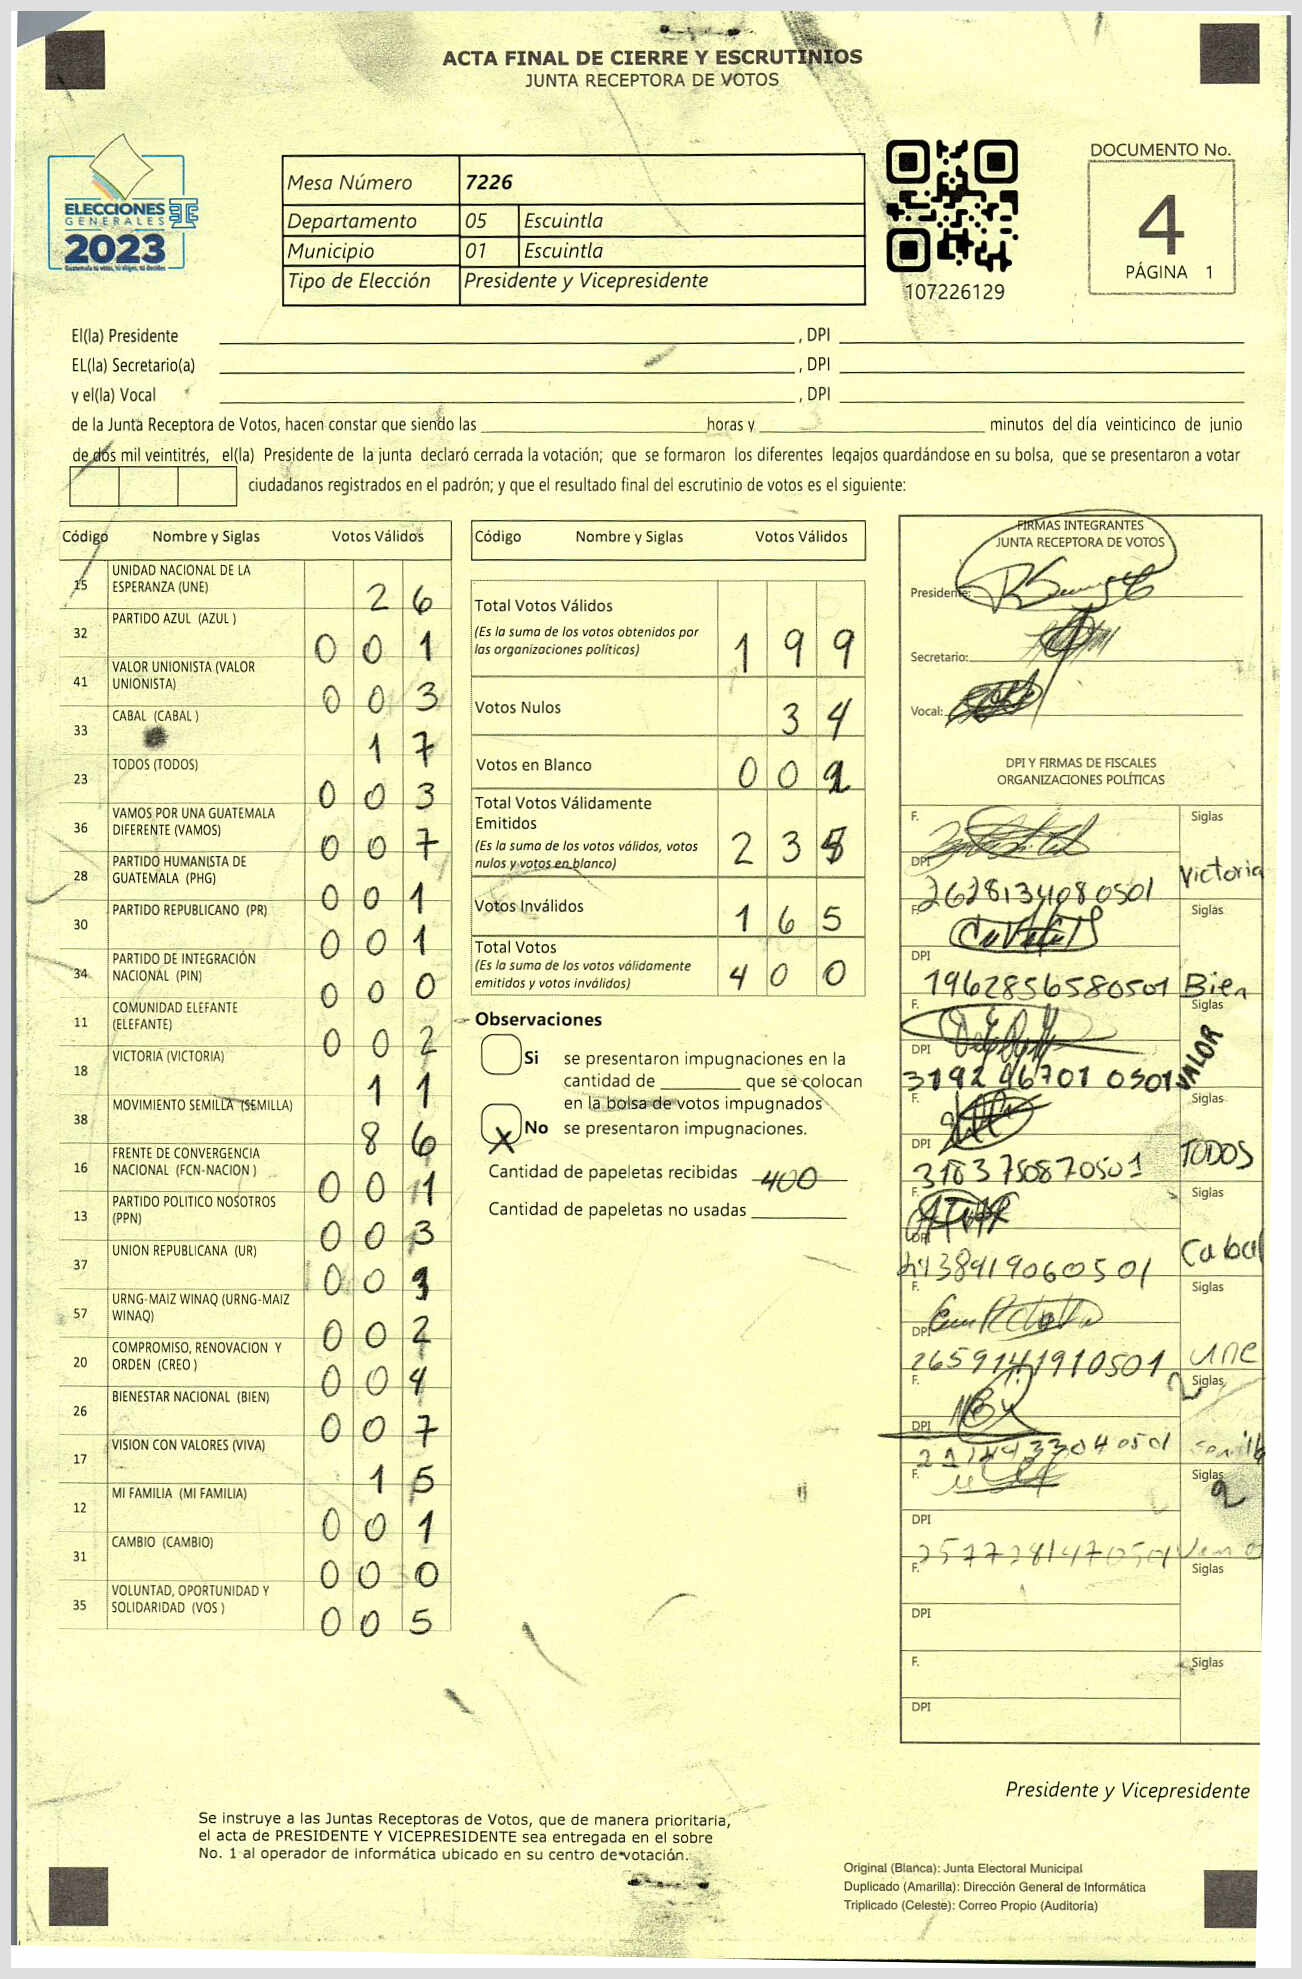 ACTA FINAL DE CIERRE Y ESCRUTINIOS
JUNTA RECEPTORA DE VOTOS
ELECCIONES
GENERALES
2023
Guatemala tú votas, tú eliges, tú decides
Mesa Número 7226
Departamento 05 Escuintla
Municipio 01 Escuintla
Tipo de Elección Presidente y Vicepresidente
107226129
DOCUMENTO No.
4
PÁGINA 1
El(la) Presidente , DPI
EL(la) Secretario(a) , DPI
y el(la) Vocal , DPI
de la Junta Receptora de Votos, hacen constar que siendo las horas y minutos del día veinticinco de junio
de dos mil veintitrés, el(la) Presidente de la junta declaró cerrada la votación; que se formaron los diferentes legajos guardándose en su bolsa, que se presentaron a votar
ciudadanos registrados en el padrón; y que el resultado final del escrutinio de votos es el siguiente:
Código Nombre y Siglas Votos Válidos
15 UNIDAD NACIONAL DE LA ESPERANZA (UNE) 2 6
32 PARTIDO AZUL (AZUL ) 0 0 1
41 VALOR UNIONISTA (VALOR UNIONISTA) 0 0 3
33 CABAL (CABAL ) 1 7
23 TODOS (TODOS) 0 0 3
36 VAMOS POR UNA GUATEMALA DIFERENTE (VAMOS) 0 0 7
28 PARTIDO HUMANISTA DE GUATEMALA (PHG) 0 0 1
30 PARTIDO REPUBLICANO (PR) 0 0 1
34 PARTIDO DE INTEGRACIÓN NACIONAL (PIN) 0 0 0
11 COMUNIDAD ELEFANTE (ELEFANTE) 0 0 2
18 VICTORIA (VICTORIA) 1 1
38 MOVIMIENTO SEMILLA (SEMILLA) 8 6
16 FRENTE DE CONVERGENCIA NACIONAL (FCN-NACION ) 0 0 1
13 PARTIDO POLITICO NOSOTROS (PPN) 0 0 3
37 UNION REPUBLICANA (UR) 0 0
57 URNG-MAIZ WINAQ (URNG-MAIZ WINAQ) 0 0 2
20 COMPROMISO, RENOVACION Y ORDEN (CREO ) 0 0 4
26 BIENESTAR NACIONAL (BIEN) 0 0 7
17 VISION CON VALORES (VIVA) 1 5
12 MI FAMILIA (MI FAMILIA) 0 0 1
31 CAMBIO (CAMBIO) 0 0 0
35 VOLUNTAD, OPORTUNIDAD Y SOLIDARIDAD (VOS ) 0 0 5
Código Nombre y Siglas Votos Válidos
Total Votos Válidos
(Es la suma de los votos obtenidos por
las organizaciones políticas) 1 9 9
Votos Nulos 3 4
Votos en Blanco 0 0
Total Votos Válidamente
Emitidos
(Es la suma de los votos válidos, votos
nulos y votos en blanco) 2 3
Votos Inválidos 1 6 5
Total Votos
(Es la suma de los votos válidamente
emitidos y votos inválidos) 4 0 0
Observaciones
Si se presentaron impugnaciones en la
cantidad de que se colocan
en la bolsa de votos impugnados
X No se presentaron impugnaciones.
Cantidad de papeletas recibidas 400
Cantidad de papeletas no usadas
FIRMAS INTEGRANTES
JUNTA RECEPTORA DE VOTOS
Presidente:
Secretario:
Vocal:
DPI Y FIRMAS DE FISCALES
ORGANIZACIONES POLÍTICAS
F. Siglas
DPI 2628134080501 Victoria
F. Siglas
DPI 1962856580501 Bien
F. Siglas
DPI 3192467010501 VALOR
F. Siglas
DPI 3183750870501 TODOS
F. Siglas
DPI Cabal
F. Siglas
DPI 2659141910501 une
F. Siglas
DPI
F. Siglas
DPI
F. Siglas
DPI
F. Siglas
DPI
Presidente y Vicepresidente
Se instruye a las Juntas Receptoras de Votos, que de manera prioritaria,
el acta de PRESIDENTE Y VICEPRESIDENTE sea entregada en el sobre
No. 1 al operador de informática ubicado en su centro de votación.
Original (Blanca): Junta Electoral Municipal
Duplicado (Amarilla): Dirección General de Informática
Triplicado (Celeste): Correo Propio (Auditoría)